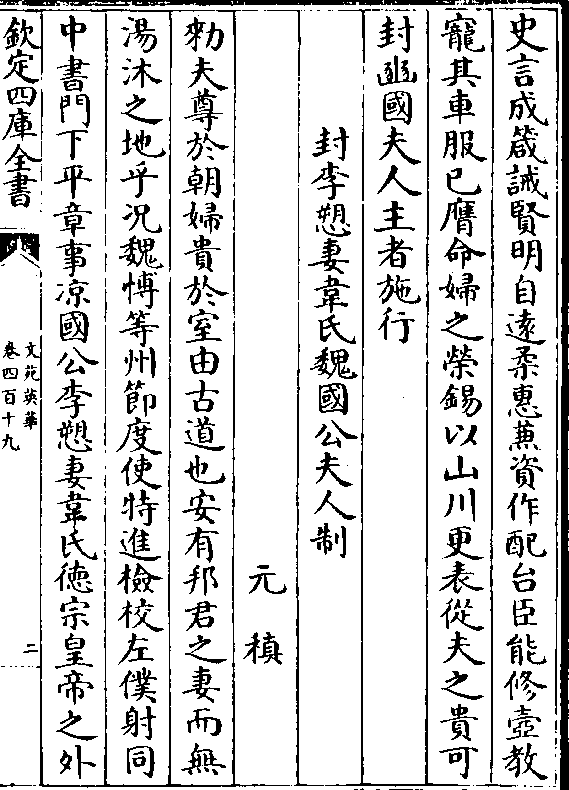 史言成箴誡賢明自遠柔惠蕪資作配台臣能修壼教
寵其車服已膺命婦之榮錫以山川更表從夫之貴可
封豳國夫人主者施行
封李愬妻韋氏魏國公夫人制
元稹
勑夫尊於朝婦貴於室由古道也安有邦君之妻而無
湯沐之地乎况魏博等州節度使特進檢校左僕射同
中書門下平章事凉國公李愬妻韋氏德宗皇帝之外
欽定四庫全書
文苑英華
卷四百十九
二